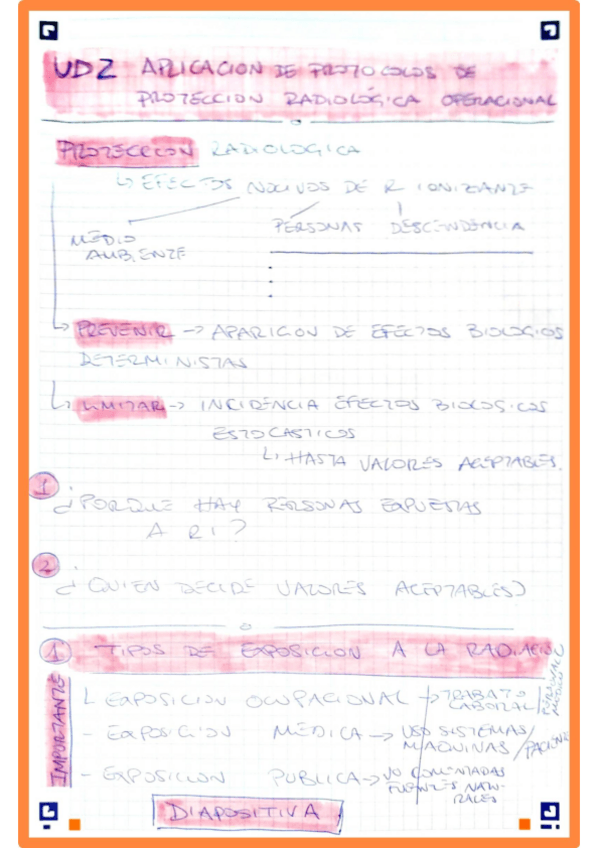 UD2 APLICACION DE PROTOCOLOS DE
PROTECCION RADIOLÓGICA OPERACIONAL
PROTECCION RADIOLOGICA
↳ EFECTOS NOCIVOS DE R IONIZANTE
MEDIO
AMBIENTE
PERSONAS DESCENDENCIA
↳ PREVENIR → APARICION DE EFECTOS BIOLOGICOS
DETERMINISTAS
↳ LIMITAR → INCIDENCIA EFECTOS BIOLOGICOS
ESTOCASTICOS
↳ HASTA VALORES ACEPTABLES.
1
¿PORQUE HAY PERSONAS EXPUESTAS
A RI?
2
¿QUIEN DECIDE VALORES ACEPTABLES?
1 TIPOS DE EXPOSICION A LA RADIACION
IMPORTANTE
EXPOSICION OCUPACIONAL → TRABAJO
LABORAL
- EXPOSICION MEDICA → USO SISTEMAS/
MAQUINAS / PACIENTE
- EXPOSICION PUBLICA → NO
FUENTES NATU-
RALES
DIAPOSITIVA